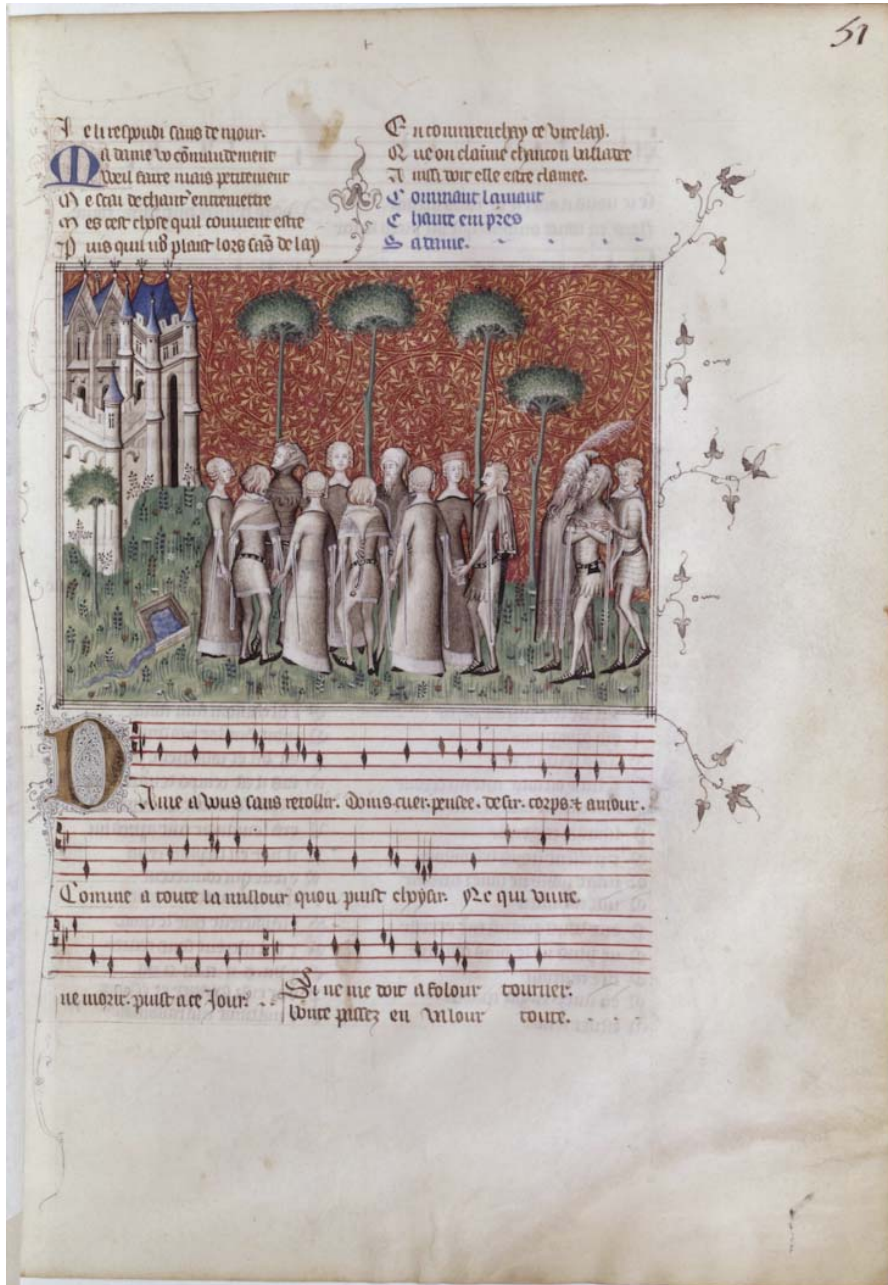 51
Je li respondi sans demour.
Ma dame vo cōmandement
Weil faire mais petitement
Me scai de chant' entremettre
Mes cest chose quil couvient estre
Puis quil plaist lors sās delay
Encommenchay ce virelay.
Que on claimme chancon balladee
Ainssi doit elle estre clamee.
Comment lamant
Chante empres
Sa dame.
Dame a vous sans retollir. Doins cuer. pensee. desir. corps. et amour.
Comme a toute la millour quon puist choysir. Ne qui vivre.
ne morir. puist a ce Jour.
Si ne me doit a folour tourner.
bonte passez en valour toute.